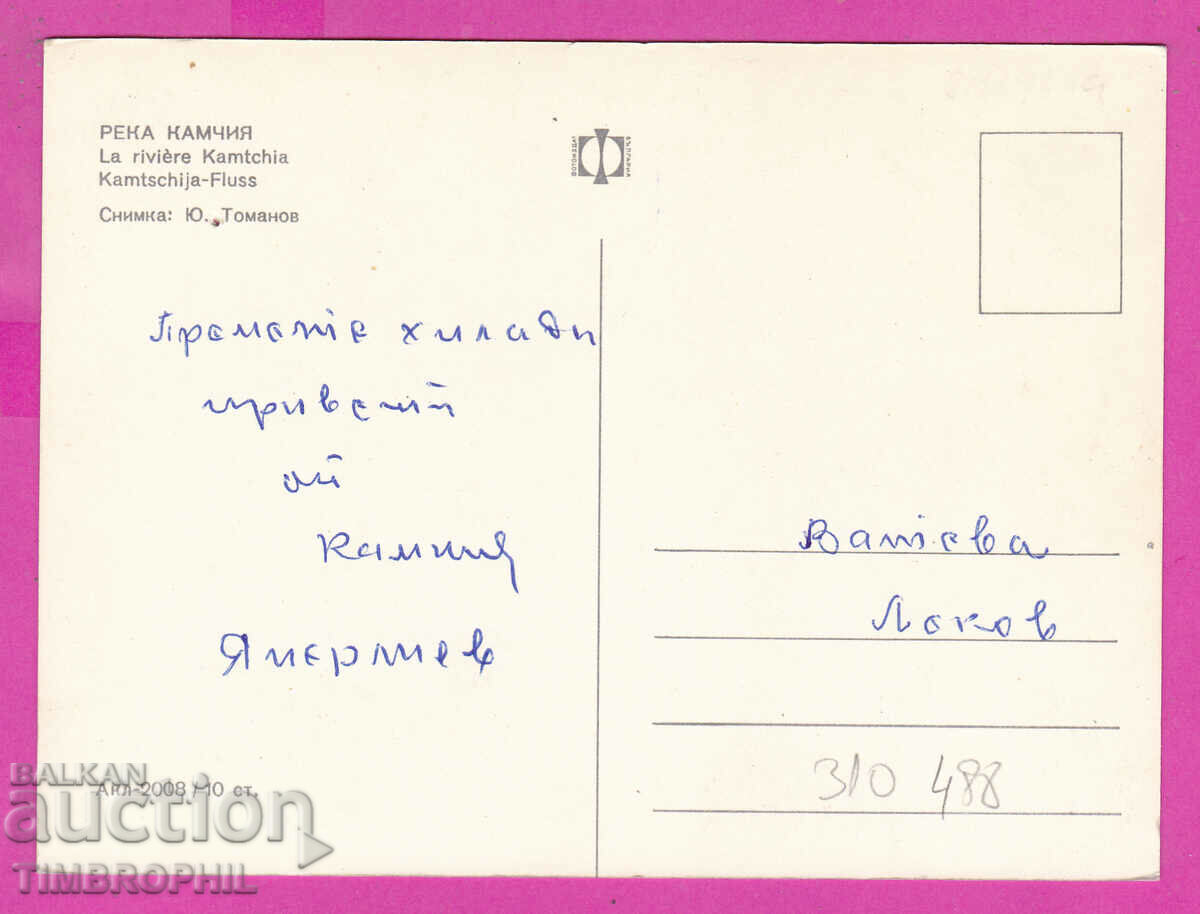 РЕКА КАМЧИЯ
La rivière Kamtchia
Kamtschija-Fluss
Снимка: Ю. Томанов
ФОТОИЗДАТ
БЪЛГАРИЯ
Приемете хиляди
привет
от
Камчия
Ватева
Леков
310 488
Акл-2008 / 10 ст.
BALKAN
auction
TIMBROPHIL